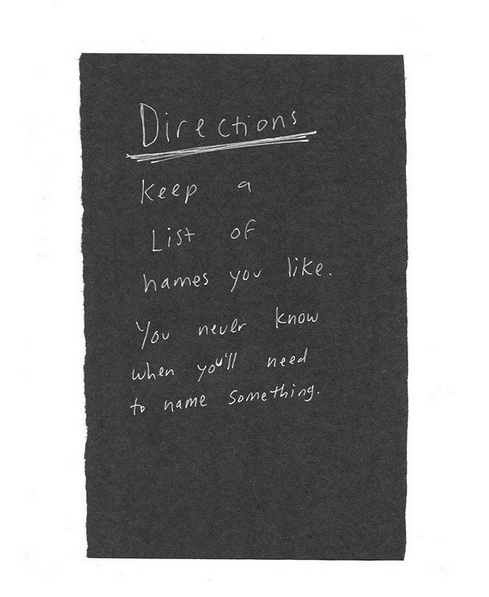 Directions
Keep a
List of
names you like.
You never know
when you'll need
to name something.